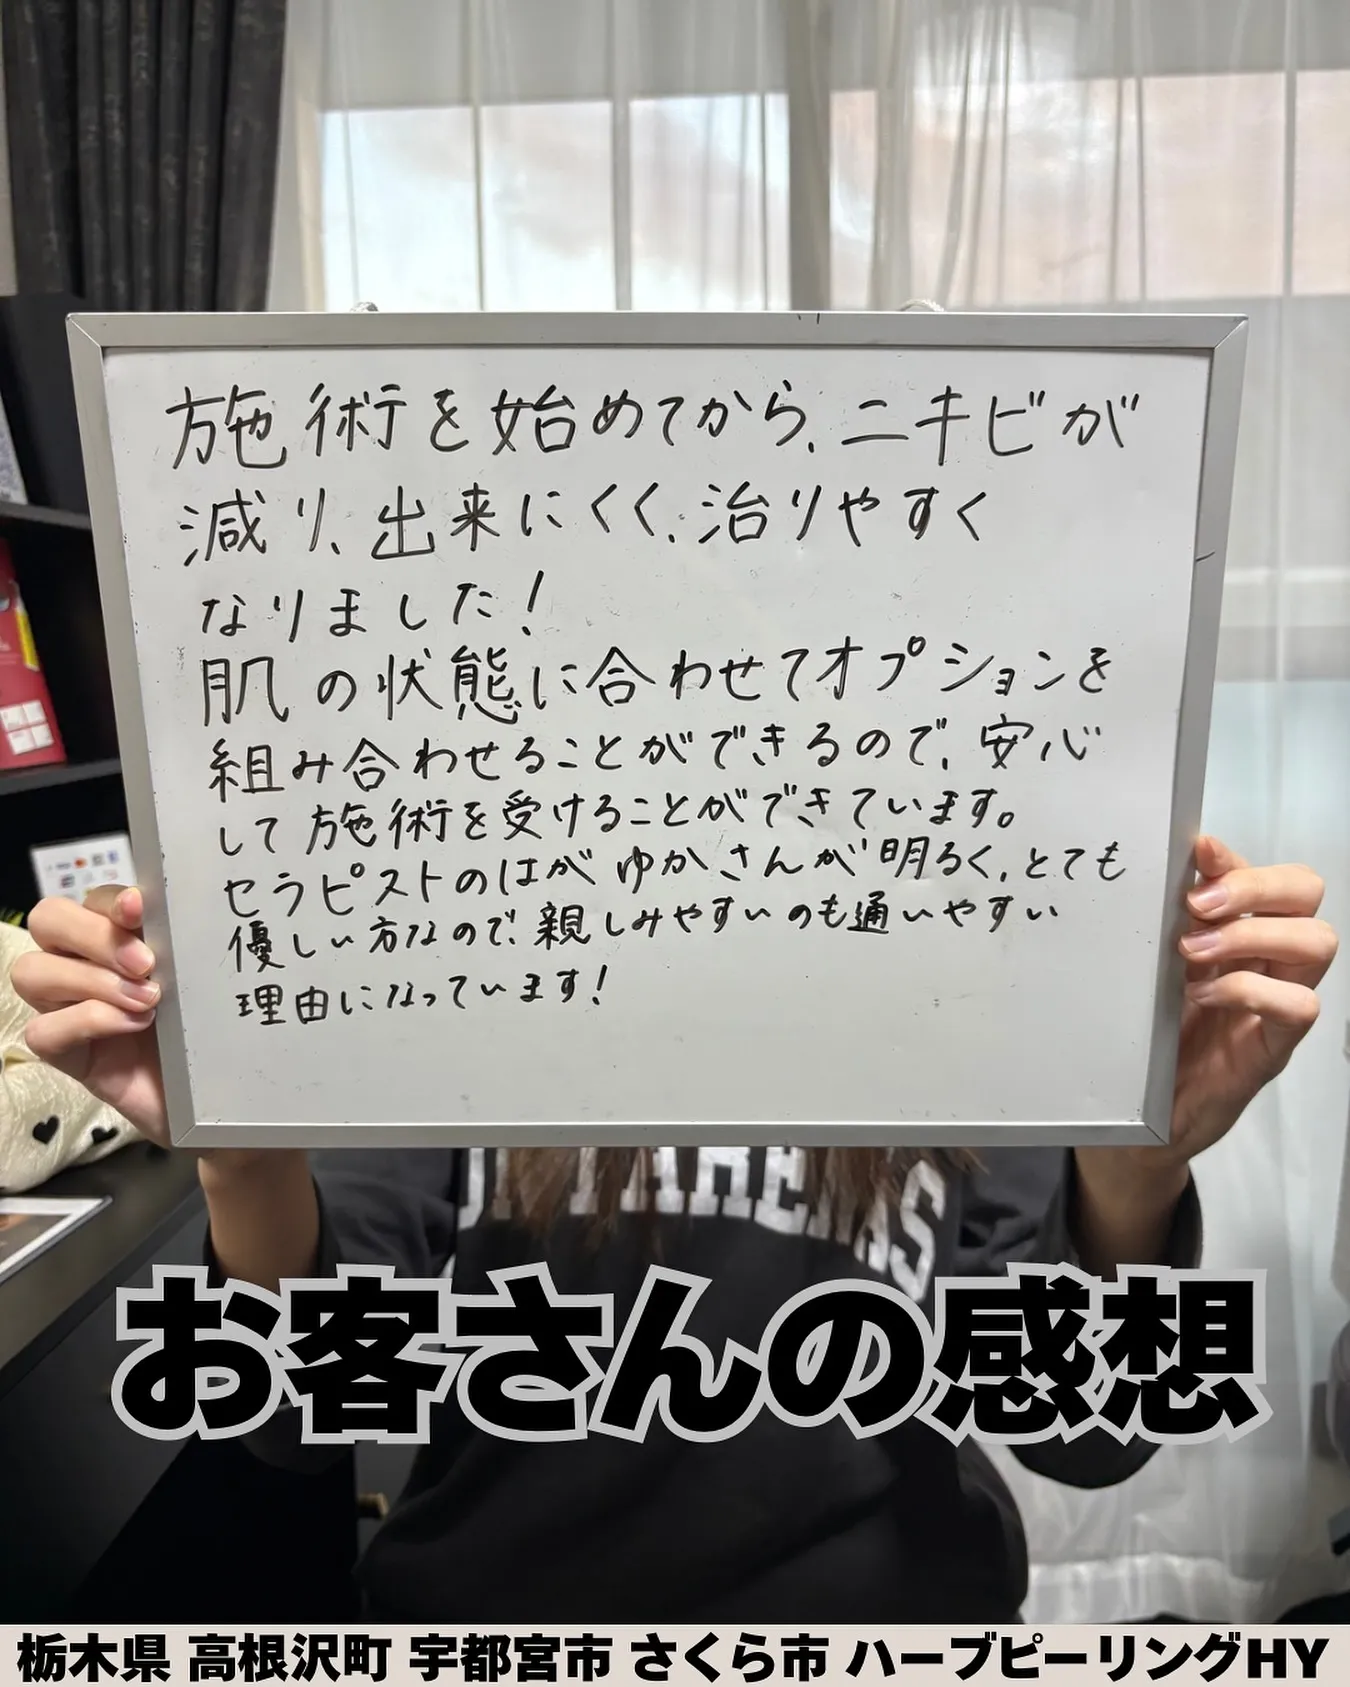 施術を始めてから、ニキビが
減り、出来にくく、治りやすく
なりました！
肌の状態に合わせてオプションを
組み合わせることができるので、安心
して施術を受けることができています。
セラピストのはがゆかさんが明るく、とても
優しい方なので、親しみやすいのも通いやすい
理由になっています！
お客さんの感想
栃木県 高根沢町 宇都宮市 さくら市 ハーブピーリングHY